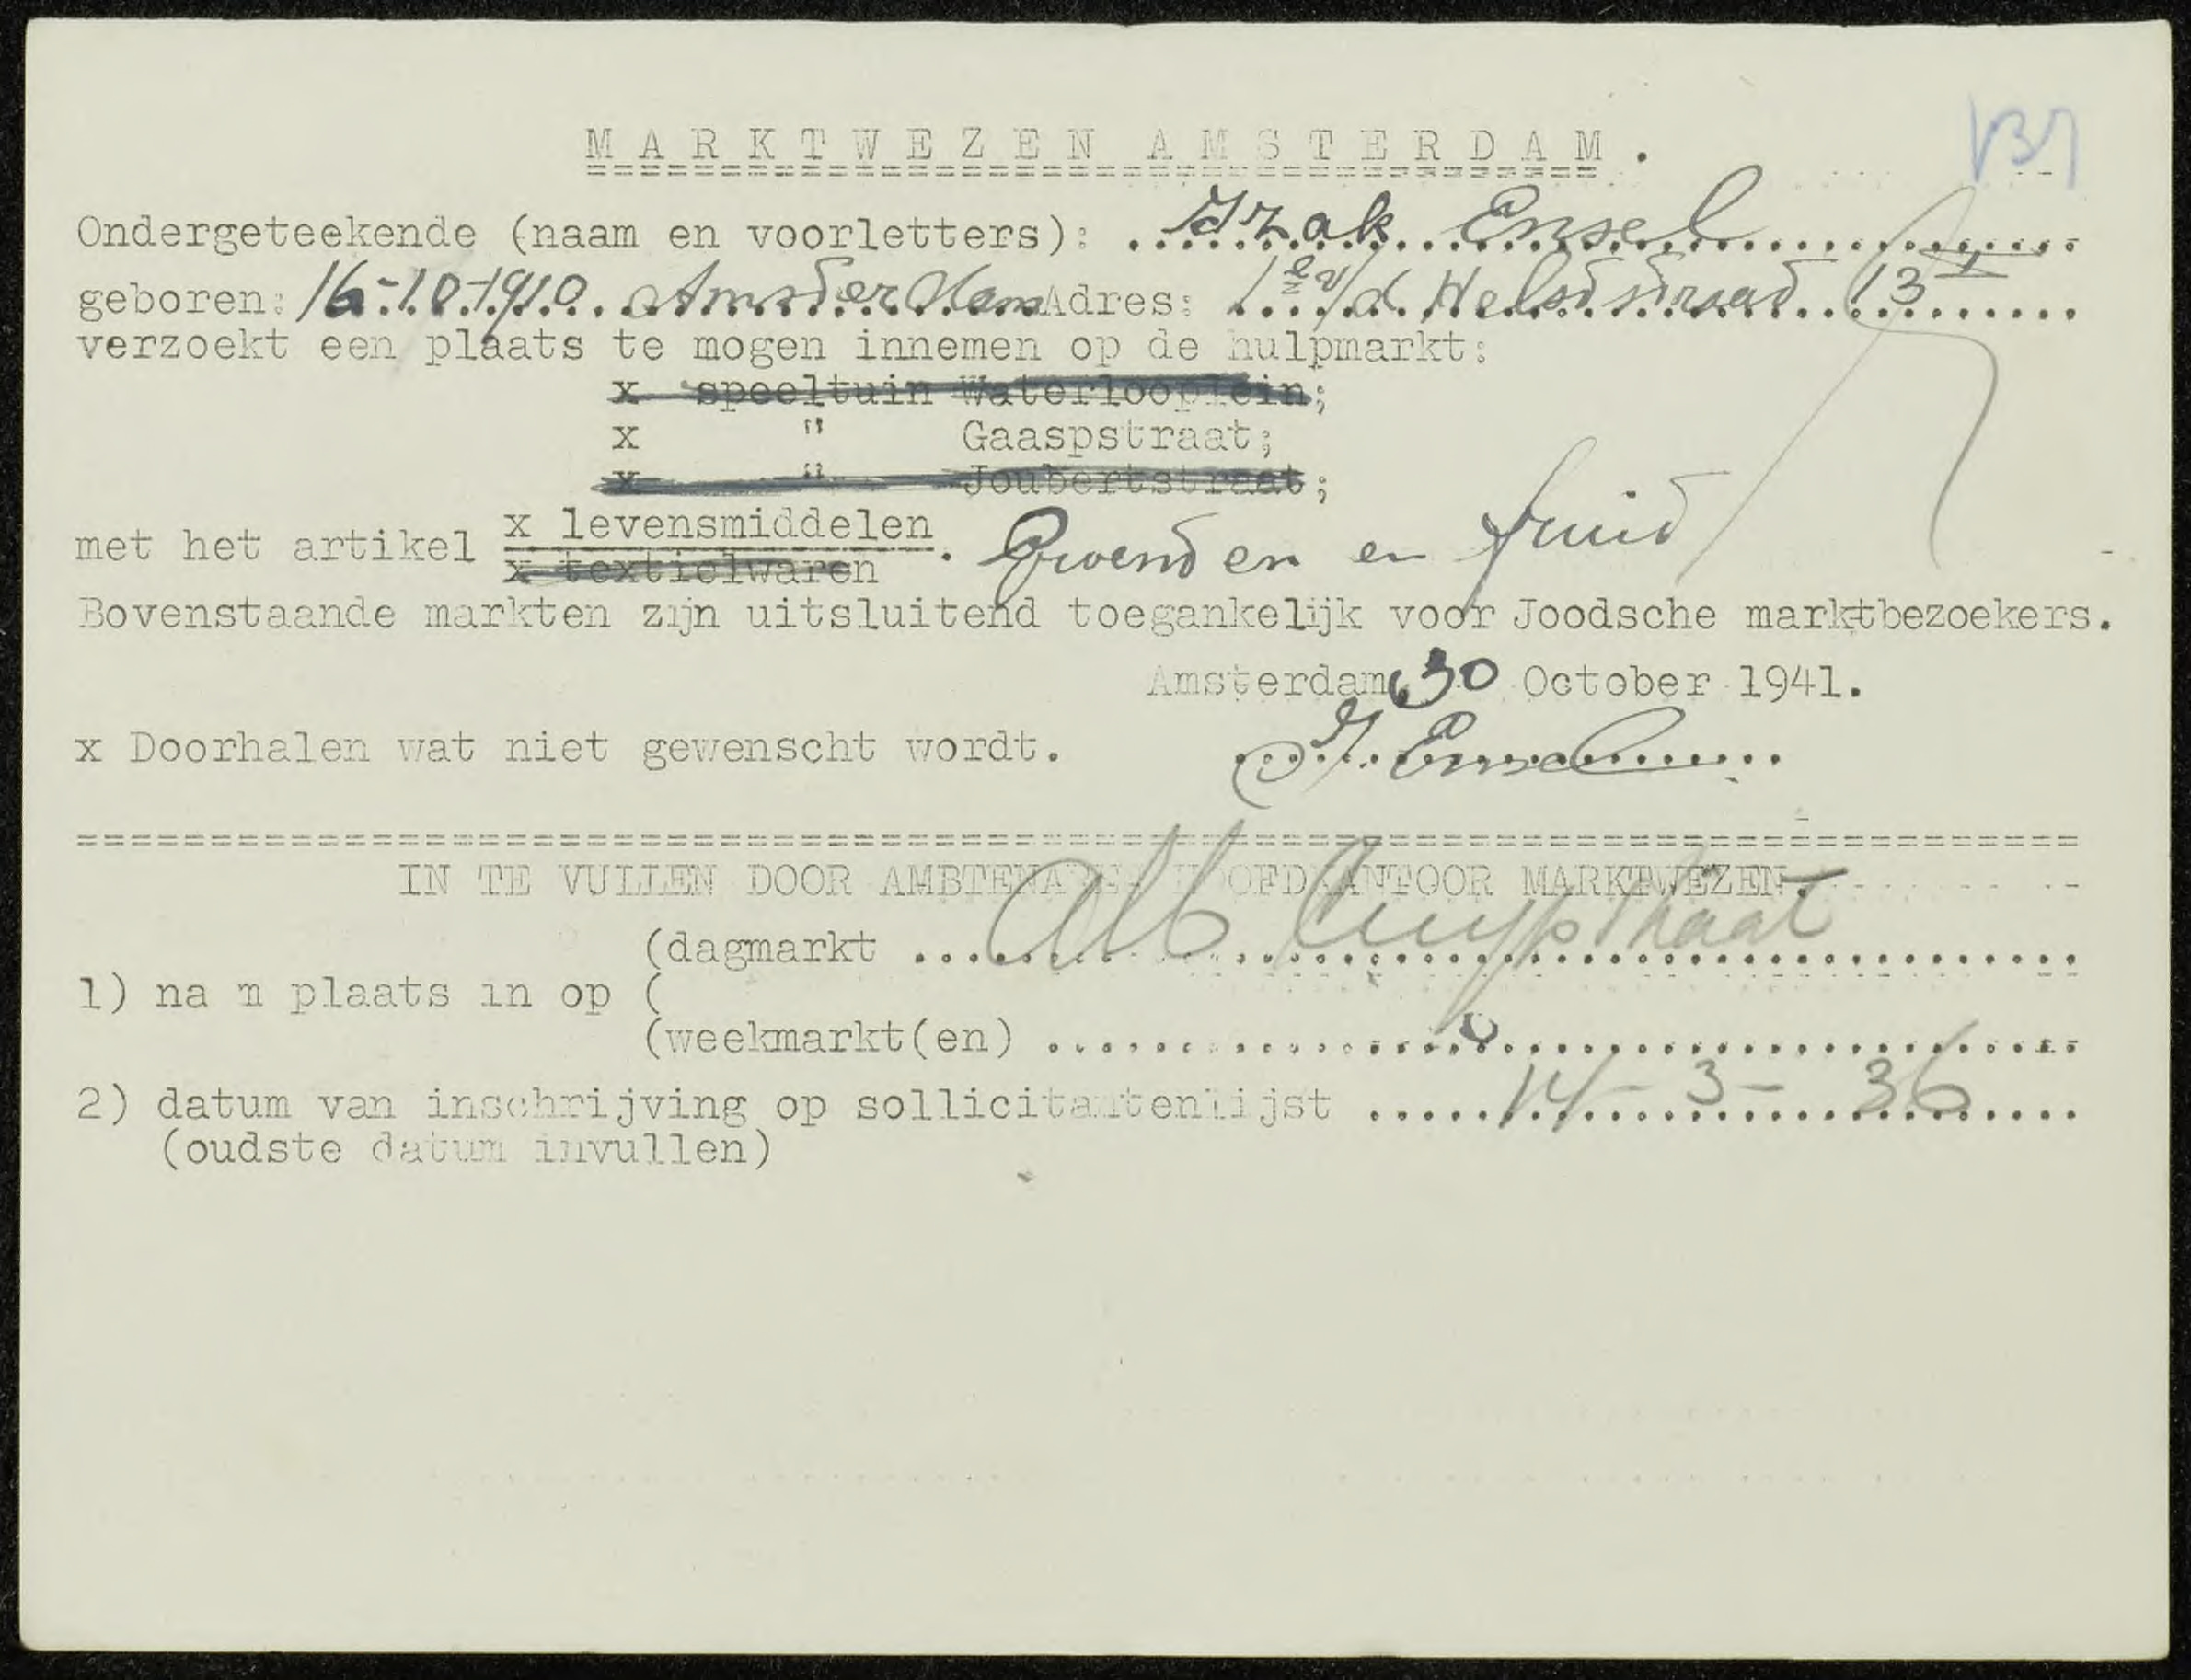 MARKTWEZEN AMSTERDAM.
Ondergeteekende (naam en voorletters): Izak Ensel
geboren: 16-10-1910. Amsterdam Adres: 1e v/d Helststraat 13 I
verzoekt een plaats te mogen innemen op de hulpmarkt:
x speeltuin Waterlooplein;
x " Gaaspstraat;
x " Joubertstraat;
met het artikel x levensmiddelen. Groenten en fruit
x textielwaren
Bovenstaande markten zijn uitsluitend toegankelijk voor Joodsche marktbezoekers.
Amsterdam, 30 October 1941.
x Doorhalen wat niet gewenscht wordt. I. Ensel
IN TE VULLEN DOOR AMBTENAREN HOOFDKANTOOR MARKTWEZEN.
(dagmarkt Alb Cuypstraat
1) na m plaats in op (
(weekmarkt(en)
2) datum van inschrijving op sollicitantenlijst 14-3-36
(oudste datum invullen)